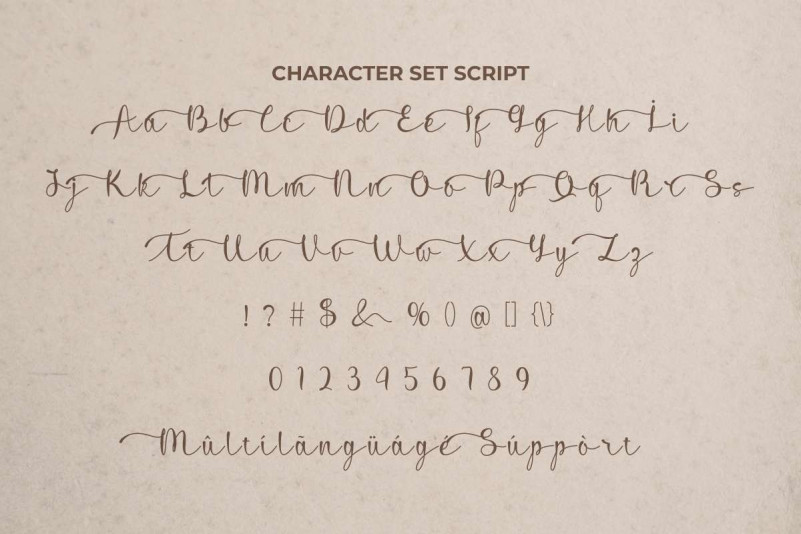 CHARACTER SET SCRIPT
Aa Bb Cc Dd Ee Ff Gg Hh İi
Jj Kk Lt Mm Nn Oo Pp Qq Rr Ss
Tt Uu Vv Ww Xx Yy Zz
! ? # $ & % () @ [] {\}
0 1 2 3 4 5 6 7 8 9
Mûltílãngüágé Súppòrt